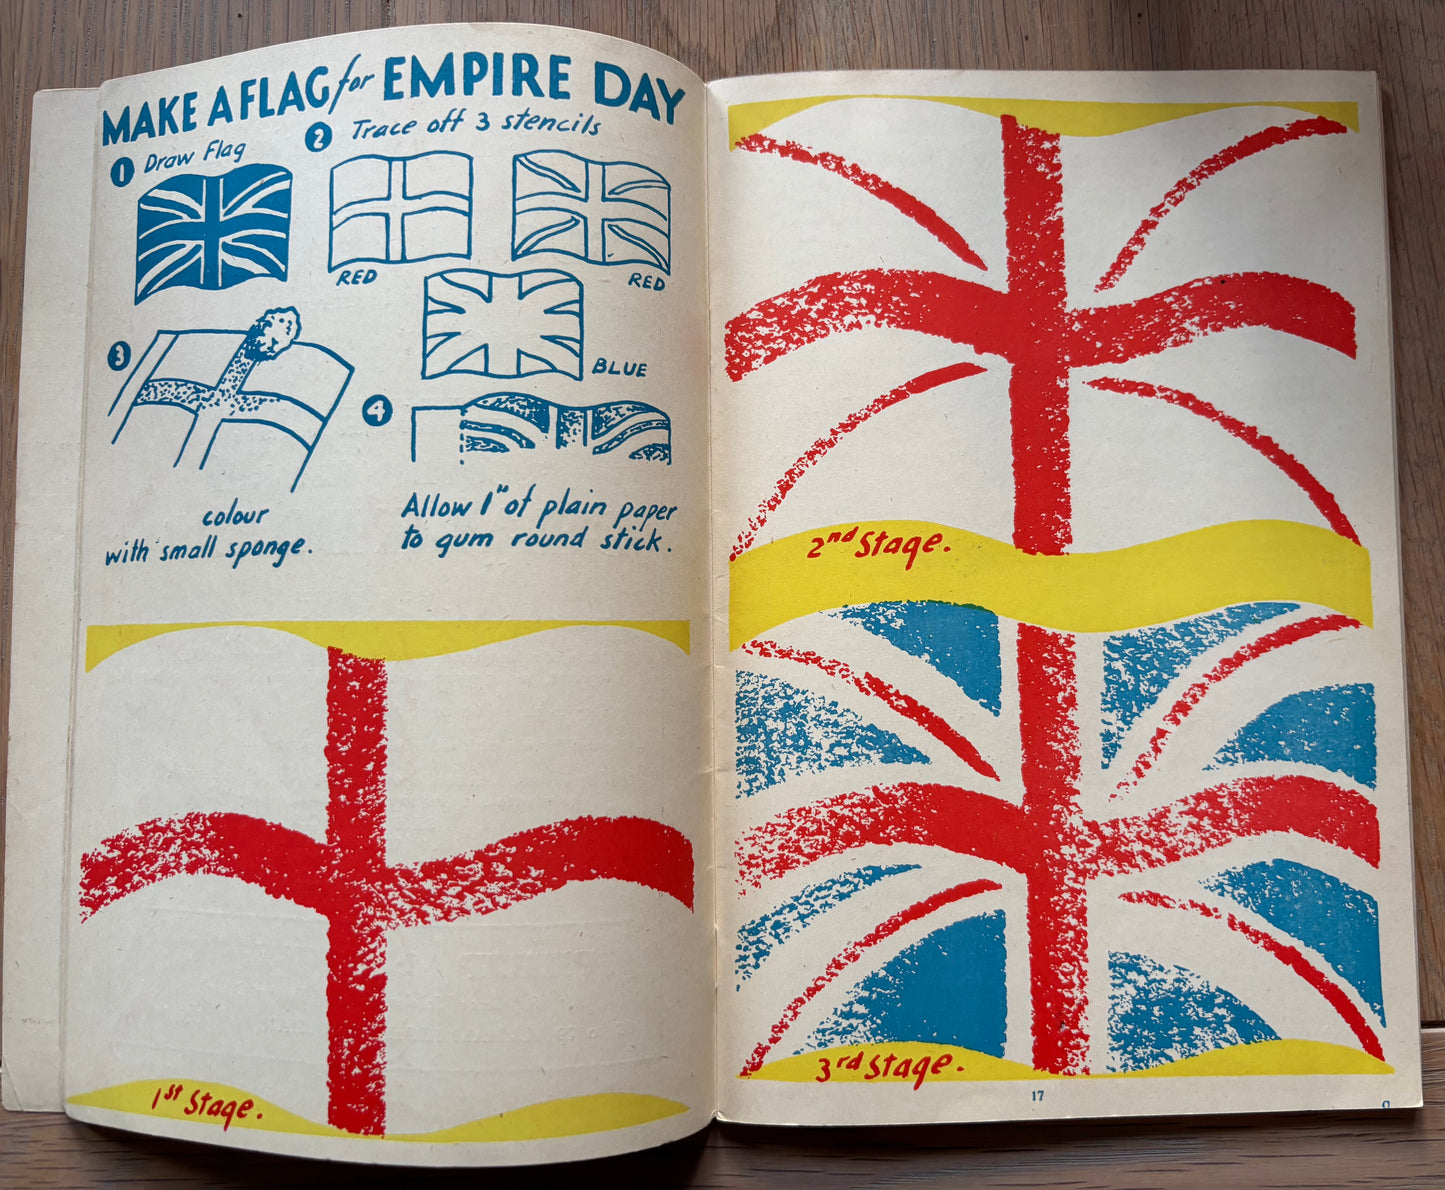 MAKE A FLAG for EMPIRE DAY
1 Draw Flag
2 Trace off 3 stencils
RED
RED
BLUE
3
colour
with small sponge.
4
Allow 1" of plain paper
to gum round stick.
1st Stage.
2nd Stage.
3rd Stage.
17